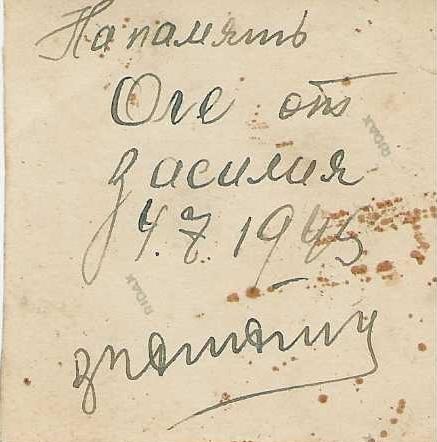 На память
Оле от
Василия
4.7 1945
RIDAX
RIDAX